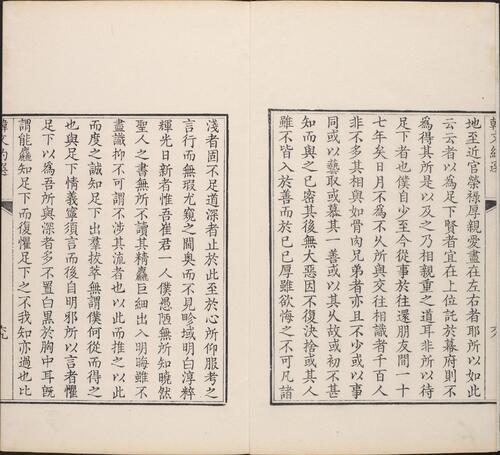 地至近官榮祿厚親愛盡在左右者耶所以如此
云云者以為足下賢者宜在上位託於幕府則不
為得其所是以及之乃相親重之道耳非所以待
足下者也僕自少至今從事於往還朋友間一十
七年矣日月不為不久所與交往相識者千百人
非不多其相與如骨肉兄弟者亦且不少或以事
同或以藝取或慕其一善或以其久故或初不甚
知而與之已密其後無大惡因不復決捨或其人
雖不皆入於善而於己已厚雖欲悔之不可凡諸
淺者固不足道深者止於此至於心所仰服考之
言行而無瑕尤窺之閫奧而不見畛域明白淳粹
輝光日新者惟吾崔君一人僕愚陋無所知曉然
聖人之書無所不讀其精麤巨細出入明晦雖不
盡識抑不可謂不涉其流者也以此而推之以此
而度之誠知足下出羣拔萃無謂僕何從而得之
也與足下情義寧須言而後自明邪所以言者懼
足下以為吾所與深者多不置白黑於胸中耳既
謂能麤知足下而復懼足下之不我知亦過也比